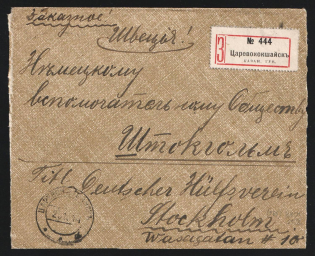 Заказное!
Швеція!
№ 444
З Царевококшайскъ
КАЗАН. ГУБ.
Нѣмецкому
вспомогательному Обществу
Штокгольмъ
Titl. Deutscher Hülfsverein
Stockholm
Wasagatan # 10